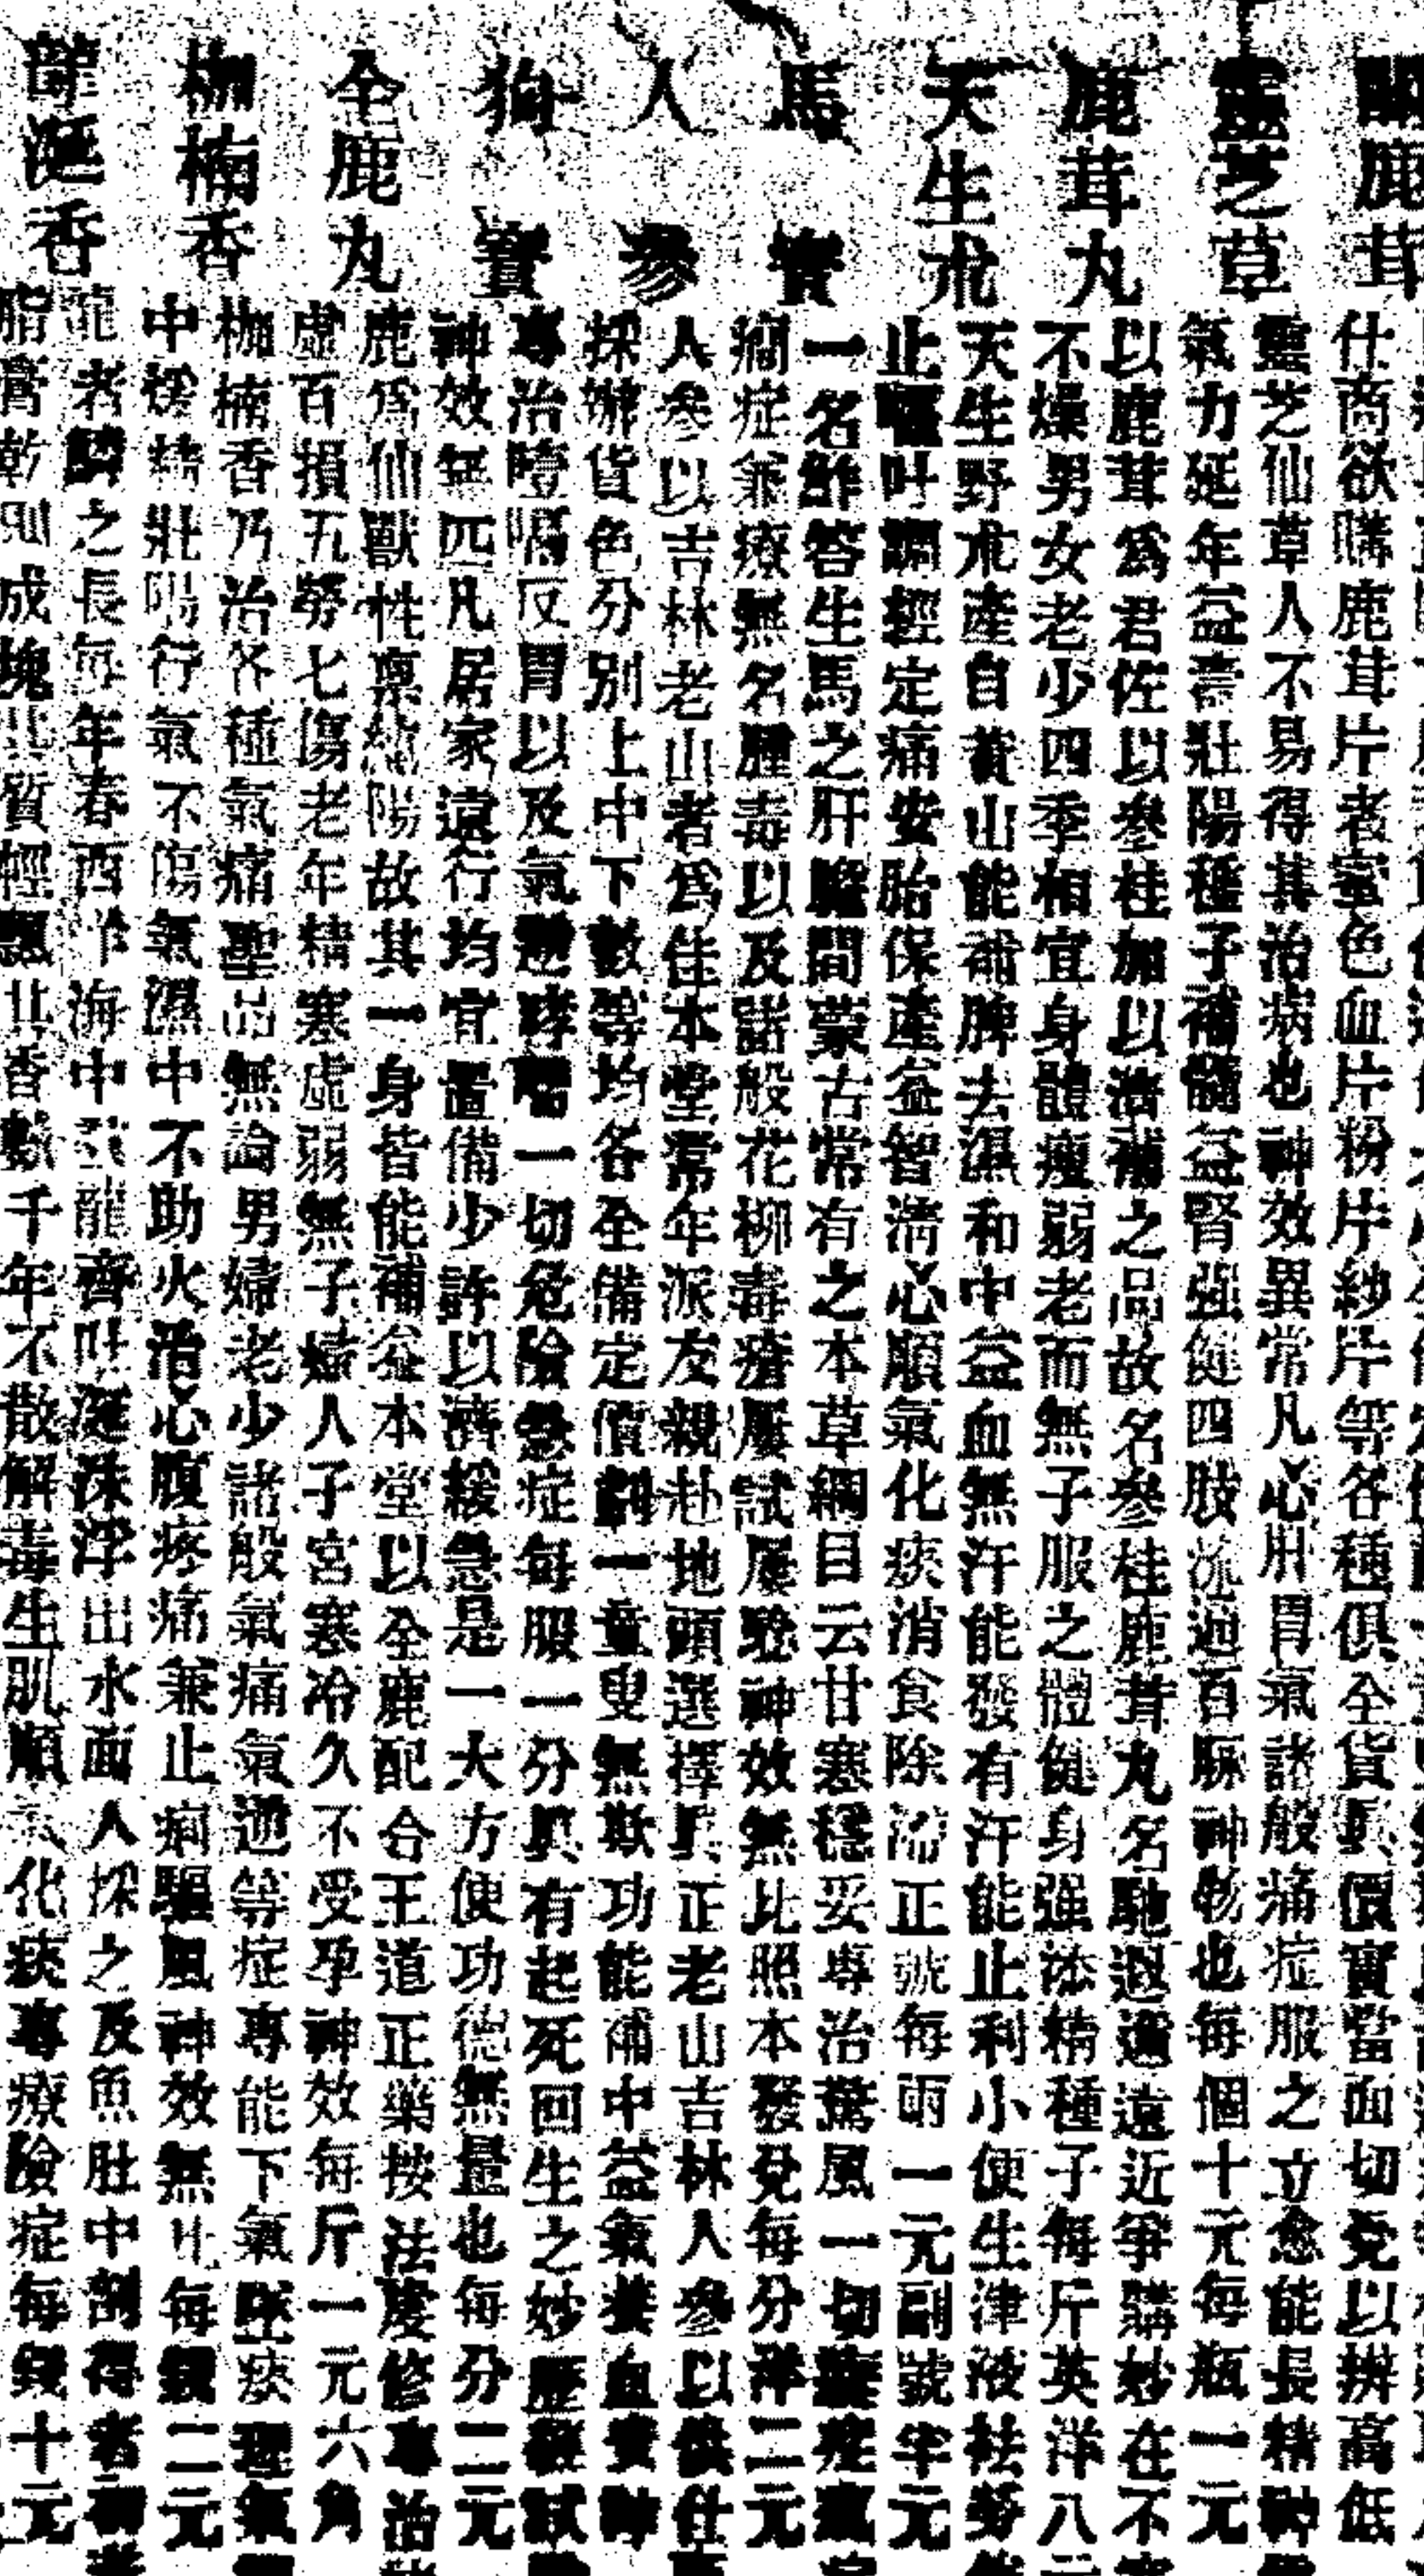 鹿茸
仕商欲購鹿茸片者蜜色血片粉片紗片等各種俱全貨眞價實當面切兌以辨高低
靈芝草
靈芝仙草人不易得其治病也神效異常凡心肝胃氣諸般痛症服之立愈能長精神
氣力延年益壽壯陽種子補髓益腎强健四肢流通百脈神物也每個十元每瓶一元
鹿茸丸
以鹿茸爲君佐以參桂加以濟補之品故名參桂鹿茸丸名馳遐邇遠近爭購妙在不
不燥男女老少四季相宜身體瘦弱老而無子服之體健身强添精種子每斤英洋八
天生朮
天生野朮產自黃山能補脾去濕和中益血無汗能發有汗能止利小便生津液祛勞
止嘔吐調經定痛安胎保產益智淸心順氣化痰消食除濕正號每兩一元副號半元
馬寶
一名鮓答生馬之肝膽間蒙古常有之本草綱目云甘寒穩妥專治驚風一切
癎症兼療無名腫毒以及諸般花柳毒瘡屢試屢驗神效無比照本發兌每分洋二元
人參
人參以吉林老山者爲佳本堂常年派友親赴地頭選擇眞正老山吉林人參以供仕
採辦貨色分別上中下數等均各全備定價劃一童叟無欺功能補中益氣養血安神
狗寶
專治噎隔反胃以及氣逆哮喘一切危險急症每服一分眞有起死回生之妙歷經試
神效無匹凡居家遠行均宜置備少許以濟緩急是一大方便功德無量也每分二元
全鹿丸
鹿爲仙獸性禀純陽故其一身皆能補益本堂以全鹿配合王道正藥按法虔修專治
虛百損五勞七傷老年精寒虛弱無子婦人子宮寒冷久不受孕神效每斤一元六角
枷楠香
枷楠香乃治各種氣痛聖品無論男婦老少諸般氣痛氣逆等症專能下氣墜痰理氣
中 精壯陽行氣不傷氣濕中不助火治心腹疼痛兼止痢驅風神效無比每錢二元
龍涎香
龍者鱗之長每年春西洋海中 龍齊吐涎沫浮出水面人採之及魚肚中剖得者
脂膏乾則成塊其質輕飄其香數千年不散解毒生肌順氣化痰專療險症每錢十元